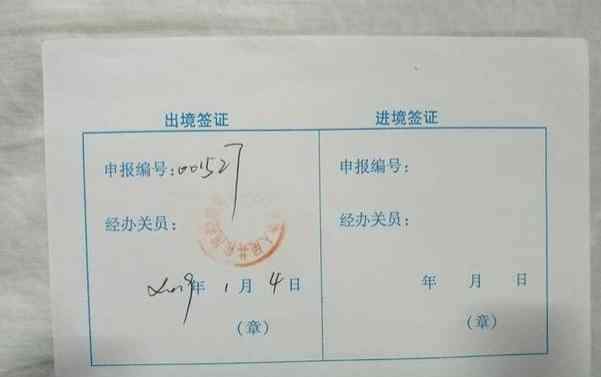 出境签证 进境签证
申报编号:001527 申报编号:
经办关员: 经办关员:
2019年 1 月 4 日 年 月 日
(章) (章)